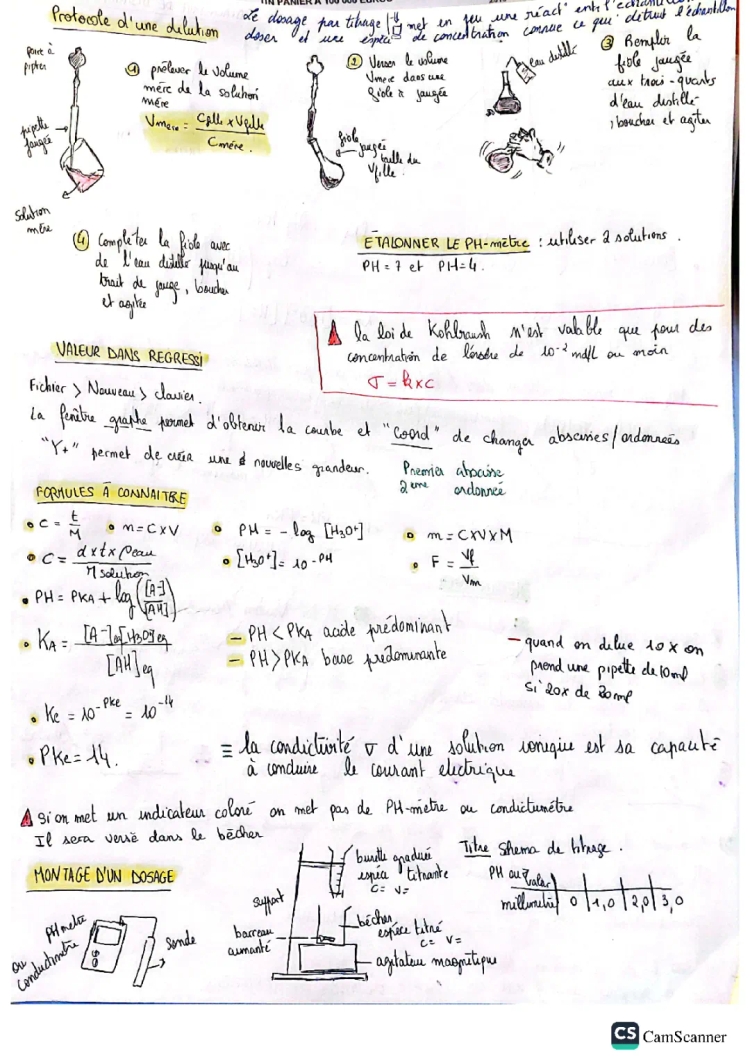 Protocole d'une dilution
Le dosage par titrage met en jeu une réact° entre l'échantillon
doser et une espèce de concentration connue ce qui détruit l'échantillon
poire à
pipeter
pipette
jaugée
solution
mère
① prélever le volume
mère de la solution
mère
Vmere = Cfille x Vfille
Cmére.
② Verser le volume
Vmere dans une
fiole à jaugée
fiole
jaugée
taille du
Vfille.
eau distillé
③ Remplir la
fiole jaugée
aux trois-quarts
d'eau distillé
, boucher et agiter
④ Compléter la fiole avec
de l'eau distiller jusqu'au
trait de jauge, boucher
et agitée
ETALONNER LE PH-mètre : utiliser 2 solutions.
PH = 7 et PH = 4.
la loi de Kohlraush n'est valable que pour des
concentration de l'ordre de 10⁻² mol/L ou moin
σ = k x c
VALEUR DANS REGRESSI
Fichier > Nouveau > clavier.
La fenêtre graphe permet d'obtenir la courbe et "coord" de changer abscisses/ordonnées
"Y+" permet de créer une nouvelles grandeur.
Premier abscisse
2eme ordonnée
FORMULES À CONNAITRE
• C = t/M • n = C x V • PH = - log [H3O+] • m = C x V x M
• C = d x t x ρeau / M solution • [H3O+] = 10 -PH • F = Vf/Vm
• PH = PKA + log([A-]/[AH])
• KA = [A-]eq[H3O+]eq / [AH]eq
- PH < PKA acide prédominant
- PH > PKA base prédominante
- quand on dilue 10 x on
prend une pipette de 10 ml
si 20x de 20 ml
• Ke = 10-Pke = 10-14
• PKe = 14.
≡ la condictivité σ d'une solution ionique est sa capacité
à conduire le courant electrique
Si on met un indicateur coloré on met pas de PH-mètre ou condictumétre
Il sera versé dans le bécher
MONTAGE D'UN DOSAGE
PH metre
ou
conductimetre
Sonde
support
barreau
aimanté
burette graduée
espèce titrante
C= V=
bécher
espèce titré
C= V=
agitateur magnétique
Titre Shema de titrage.
PH ou σ valeur
millimetre 0 1,0 2,0 3,0
CS CamScanner